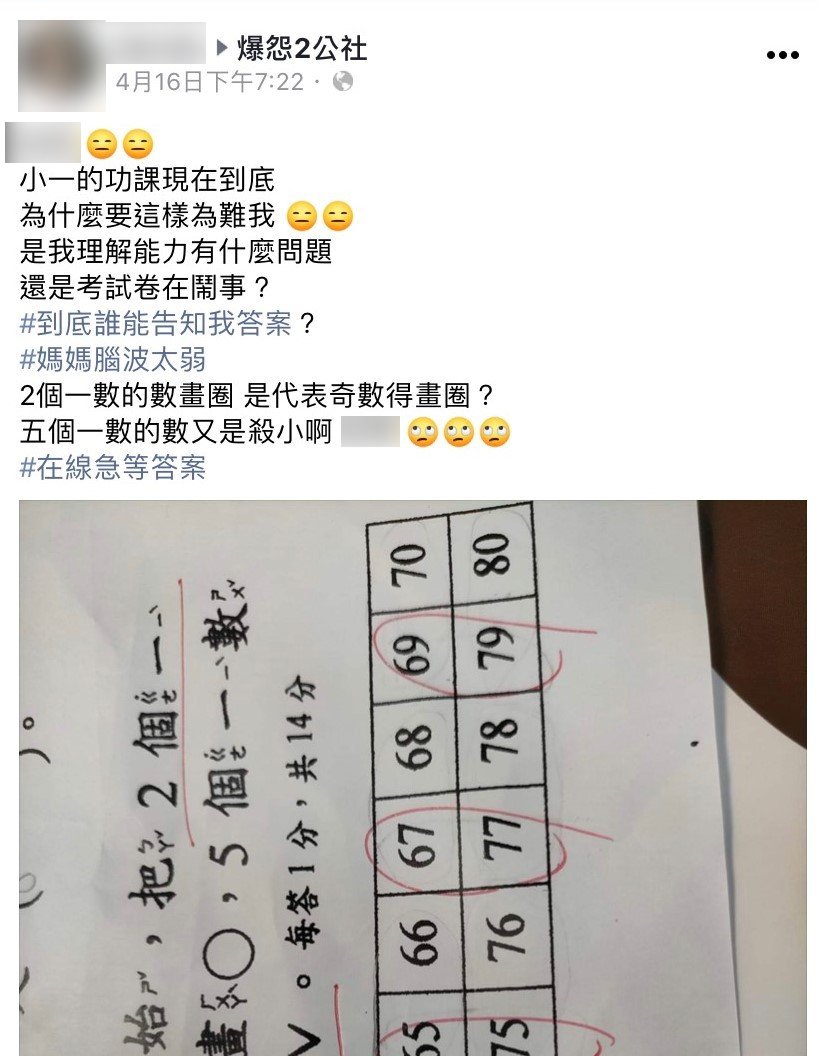 爆怨2公社
4月16日下午7:22
小一的功課現在到底
為什麼要這樣為難我
是我理解能力有什麼問題
還是考試卷在鬧事？
#到底誰能告知我答案？
#媽媽腦波太弱
2個一數的數畫圈 是代表奇數得畫圈？
五個一數的數又是殺小啊
#在線急等答案
)。
始ㄕˇ，把ㄅㄚˇ2個ㄍㄜ˙一ㄧˊ
畫ㄏㄨㄚˋ○，5個ㄍㄜ˙一ㄧˋ數ㄕㄨˇ
ˇ。每答1分，共14分
65 66 67 68 69 70
75 76 77 78 79 80